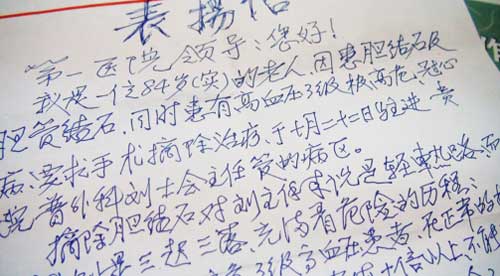 表揚信
第一医院领导：您好！
我是一位84岁(实)的老人，因患胆结石及
胆管结石，同时患有高血压3级极高危，冠心
病，要求手术摘除治疗，于七月二十二日住进贵
院普外科刘士会主任管的病区。
摘除胆结石对刘主任来说是轻車熟路，而
是三起三落，充满着危险的历程：
3级高血压患者，在正常
十倍以上，不